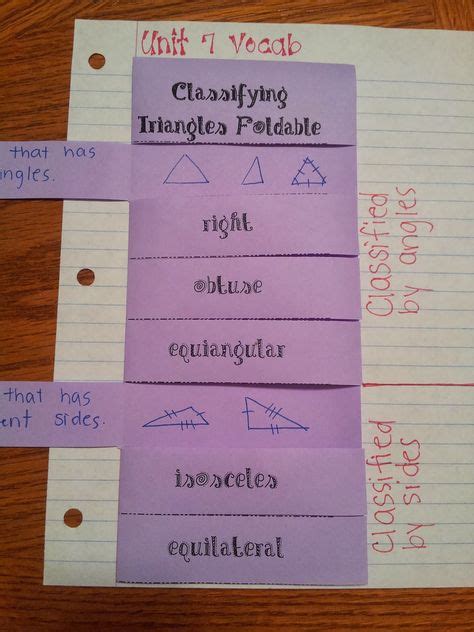 Unit 7 Vocab
Classifying
Triangles Foldable
that has
right
obtuse
equiangular
Classified
by angles
that has
sides.
isosceles
equilateral
Classified
by sides